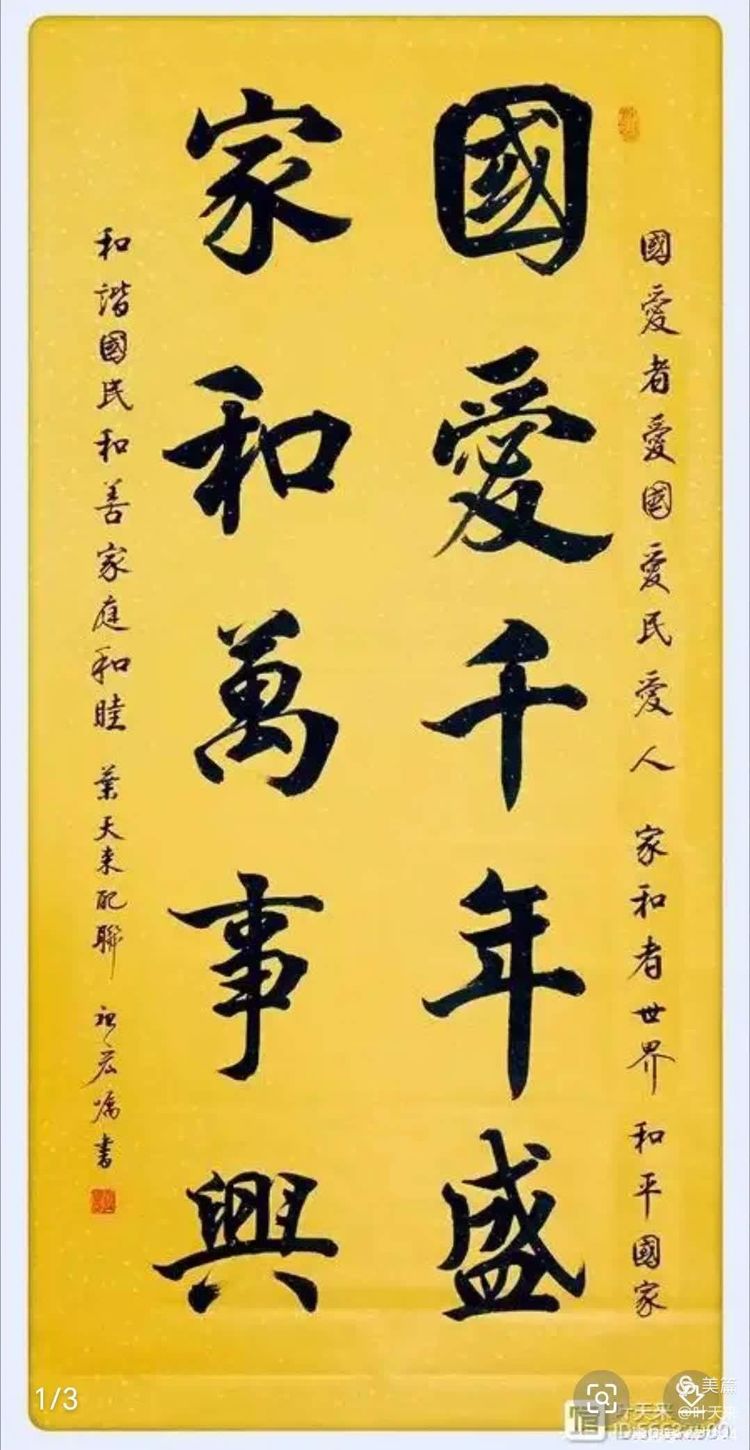 國愛者愛國愛民愛人 家和者世界和平國家
國愛千年盛
家和萬事興
和諧國民和善家庭和睦 葉天来配聯 祖宏囑書
1/3
美篇
叶天来
@叶天来